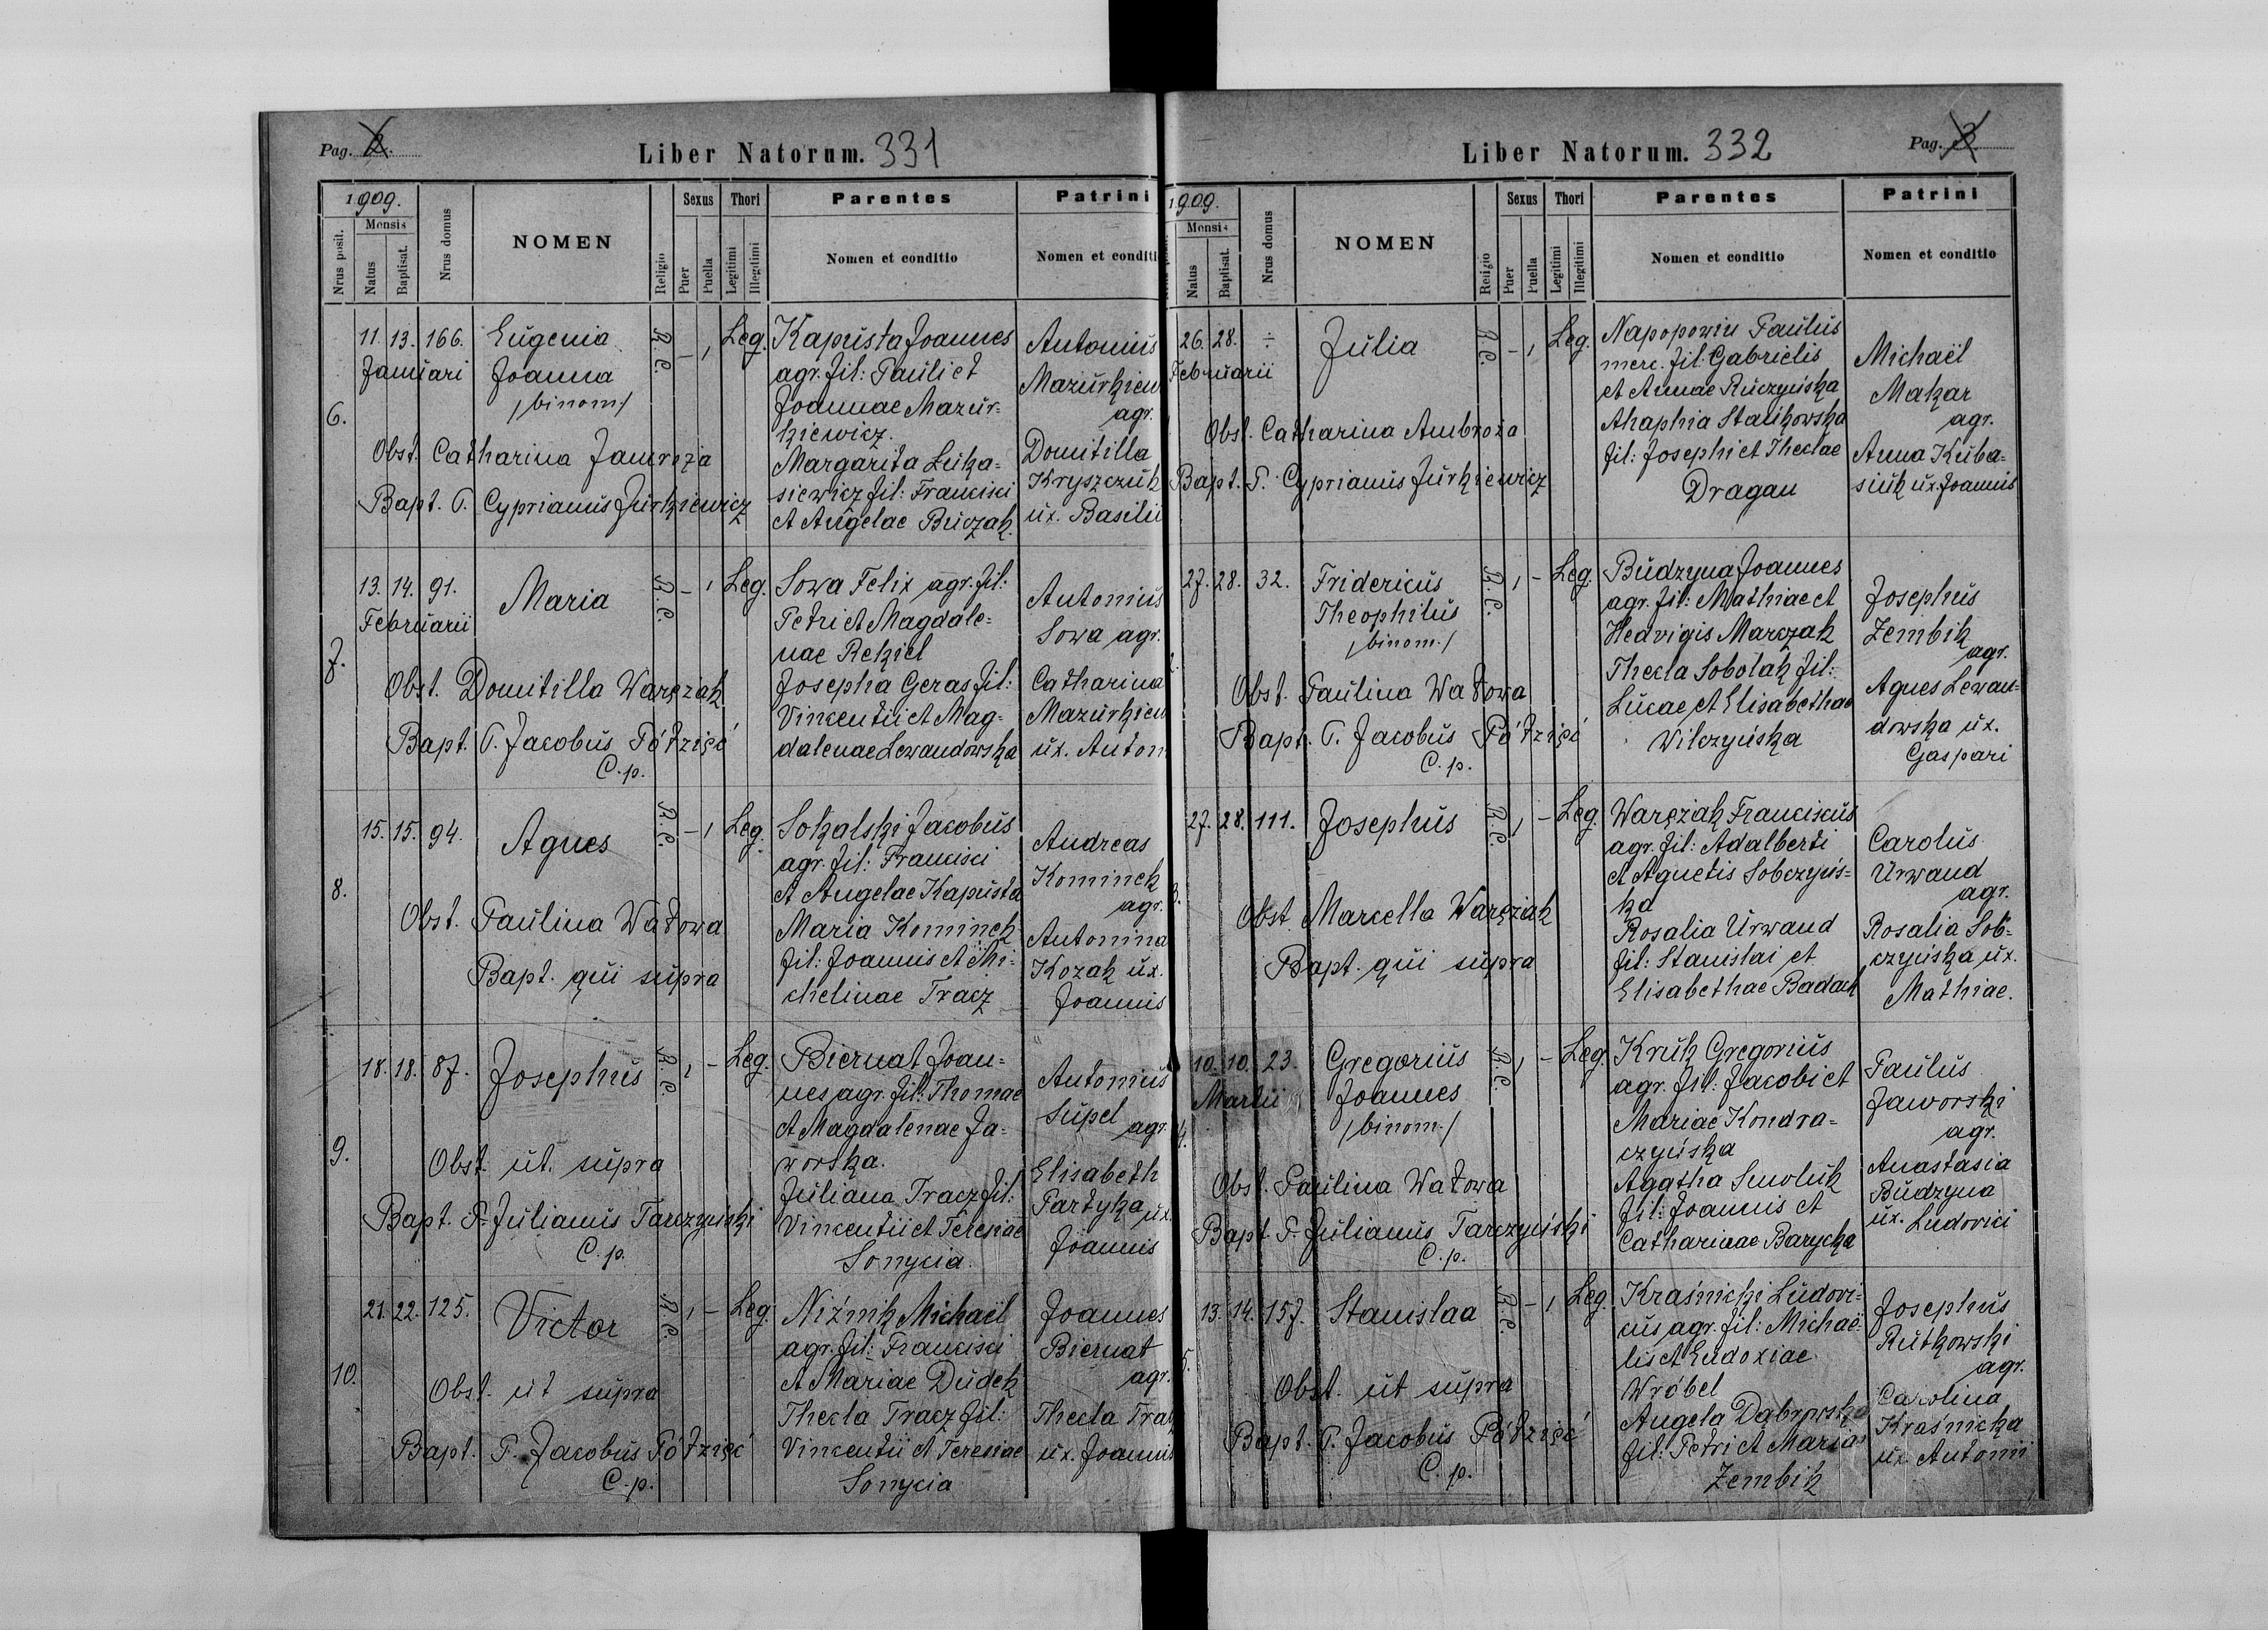 Pag. 2.
Liber Natorum. 331
1909.
Mensis
Nrus posit.
Natus
Baptisat.
Nrus domus
NOMEN
Religio
Sexus
Puer
Puella
Thori
Legitimi
Illegitimi
Parentes
Nomen et conditio
Patrini
Nomen et conditi
6.
11. 13. 166.
Januari
Eugenia
Joanna
/binom/
R. C. - 1 Leg.
Obst. Catharina
Bapt. P. Cyprianus Jurkiewicz
Kapusta Joannes
agr. fil: Pauli et
Joannae Mazur=
kiewicz.
Margarita Luka=
siewicz fil: Francisci
et Angelae Buczak.
Antonius
Mazurkiew
agr.
Domitilla
Kryszczuk
ux. Basilii
7.
13. 14. 91.
Februarii
Maria
R. C. - 1 Leg.
Obst. Domitilla Waręziak
Bapt. P. Jacobus Półzięć
C. p.
Sowa Felix agr. fil:
Petri et Magdale=
nae Rekiel
Josepha Geras fil:
Vincentii et Mag=
dalenae Lewandowska
Antonius
Sowa agr.
Catharina
Mazurkiew
ux. Anton
8.
15. 15. 94.
Agnes
R. C. - 1 Leg.
Obst. Paulina Watowa
Bapt. qui supra
Sokalski Jacobus
agr. fil: Francisci
et Angelae Kapusta
Maria Kominek
fil: Joannis et Mi=
chelinae Tracz
Andreas
Kominek
agr.
Antonina
Kozak ux.
Joannis
9.
18. 18. 87.
Josephus
R. C. 1 - Leg.
Obst. ut. supra
Bapt. P. Julianus Tarczyński
C. p.
Biernat Joan=
nes agr. fil: Thomae
et Magdalenae Ja=
worska.
Juliana Tracz fil:
Vincentii et Teresiae
Sonycia.
Antonius
Supel agr.
Elisabeth
Partyka ux.
Joannis
10.
21. 22. 125.
Victor
R. C. 1 - Leg.
Obst. ut supra
Bapt. P. Jacobus Półzięć
C. p.
Niźnik Michaël
agr. fil: Francisci
et Mariae Dudek
Thecla Tracz fil:
Vincentii et Teresiae
Sonycia
Joannes
Biernat
agr.
Thecla
ux. Joannis
Liber Natorum. 332
Pag. 3
1909.
Mensis
Natus
Baptisat.
Nrus domus
NOMEN
Religio
Sexus
Puer
Puella
Thori
Legitimi
Illegitimi
Parentes
Nomen et conditio
Patrini
Nomen et conditio
26. 28. ÷
Februarii
Julia
R. C. - 1 Leg.
Obst. Catharina Ambroza
Bapt. P. Cyprianus Jurkiewicz
Napopowiu Paulus
merc. fil. Gabrielis
et Annae Ruczyńska
Ahaphia Stalikowska
fil: Josephi et Theclae
Dragan
Michaël
Makar
agr.
Anna Kuba=
siuk ux. Joannis
27. 28. 32.
Fridericus
Theophilus
/binom./
R. C. 1 - Leg.
Obst. Paulina Watowa
Bapt. P. Jacobus Półzięć
C. p.
Budzyna Joannes
agr. fil: Mathiae et
Hedvigis Marczak
Thecla Sobolak fil:
Lucae et Elisabethae
Wilczyńska
Josephus
Zembik
agr.
Agnes Lewan=
dowska ux.
Gaspari
3.
27. 28. 111.
Josephus
R. C. 1 - Leg.
Obst. Marcella Waręziak
Bapt. qui supra
Waręziak Franciscus
agr. fil: Adalberti
et Agnetis Sobczyńs=
ka
Rosalia Urwand
fil: Stanislai et
Elisabethae Badach
Carolus
Urwand
agr.
Rosalia Sob=
czyńska ux.
Mathiae.
4.
10. 10. 23.
Martii
Gregorius
Joannes
/binom./
R. C. 1 - Leg.
Obst. Paulina Watowa
Bapt. P. Julianus Tarczyński
C. p.
Kruk Gregorius
agr. fil: Jacobi et
Mariae Kondra=
czyńska
Agatha Smoluk
fil: Joannis et
Catharinae Barycka
Paulus
Jaworski
agr.
Anastasia
Budzyna
ux. Ludovici
5.
13. 14. 157.
Stanislaa
R. C. - 1 Leg.
Obst. ut supra
Bapt. P. Jacobus Półzięć
C. p.
Kraśnicki Ludovi=
cus agr. fil: Michaë=
lis et Eudoxiae
Wróbel
Angela Dąbrowska
fil: Petri et Mariae
Zembik
Josephus
Rutkowski
agr.
Carolina
Kraśnicka
ux. Antonii